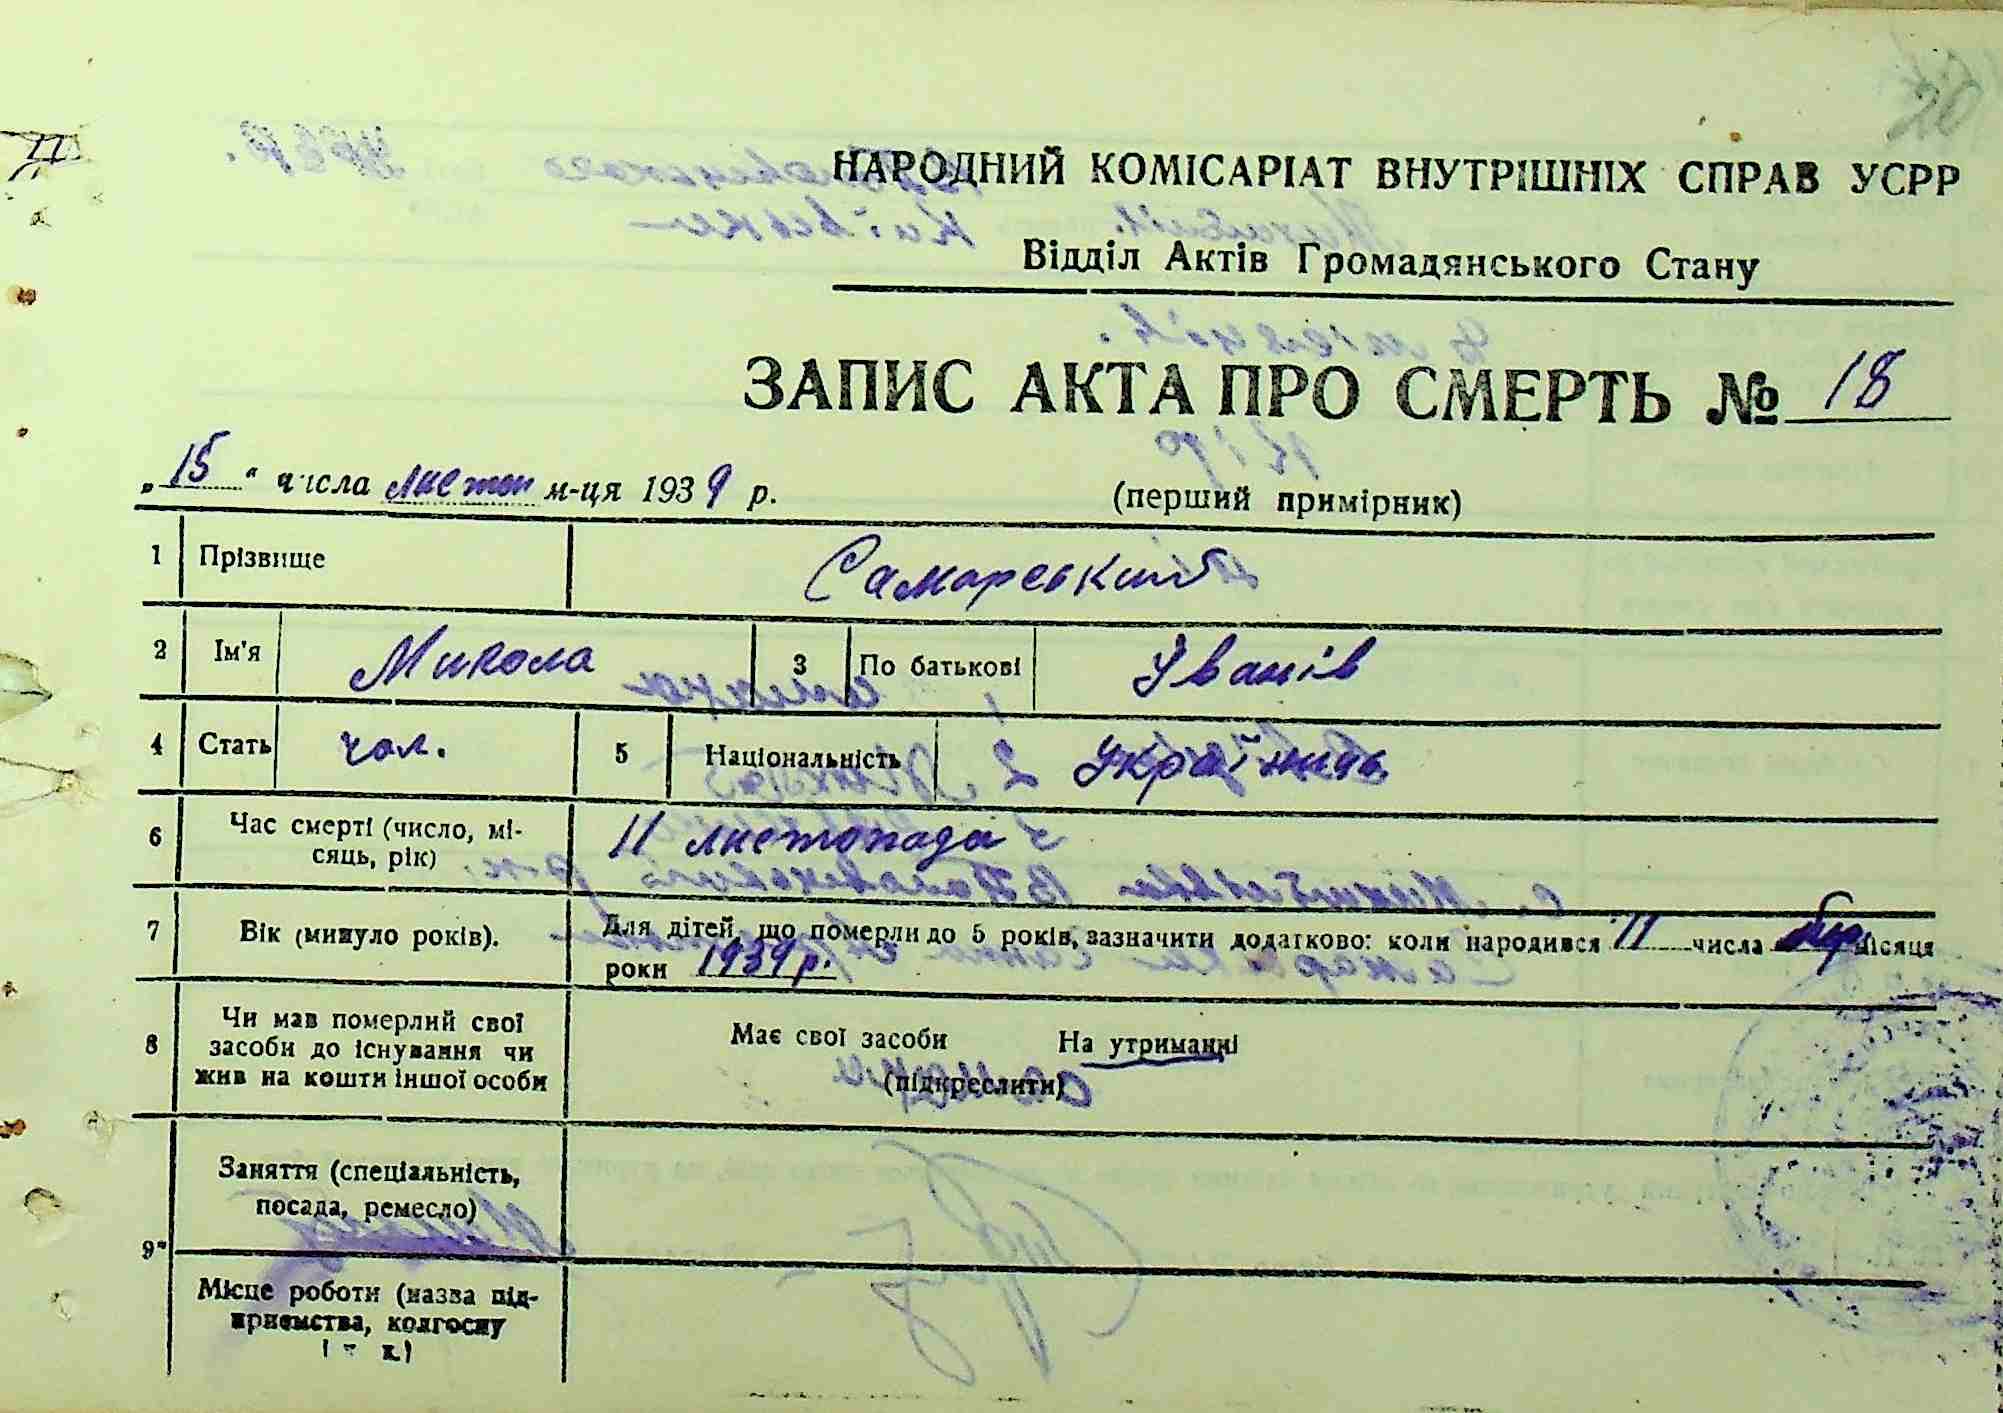 20
НАРОДНИЙ КОМІСАРІАТ ВНУТРІШНІХ СПРАВ УСРР
Відділ Актів Громадянського Стану
ЗАПИС АКТА ПРО СМЕРТЬ № 18
„ 15 “ числа листоп м-ця 1939 р.
(перший примірник)
1 Прізвище Саморський
2 Ім'я Микола 3 По батькові Іванів
4 Стать чол. 5 Національність Українець
6 Час смерті (число, мі-
сяць, рік) 11 листопада
7 Вік (минуло років). Для дітей, що померли до 5 років, зазначити додатково: коли народився 11 числа місяця
роки 1939 р.
8 Чи мав померлий свої
засоби до існування чи
жив на кошти іншої особи
Має свої засоби На утриманні
(підкреслити)
9 Заняття (спеціальність,
посада, ремесло)
Місце роботи (назва під-
приємства, колгоспу
і т. к.)